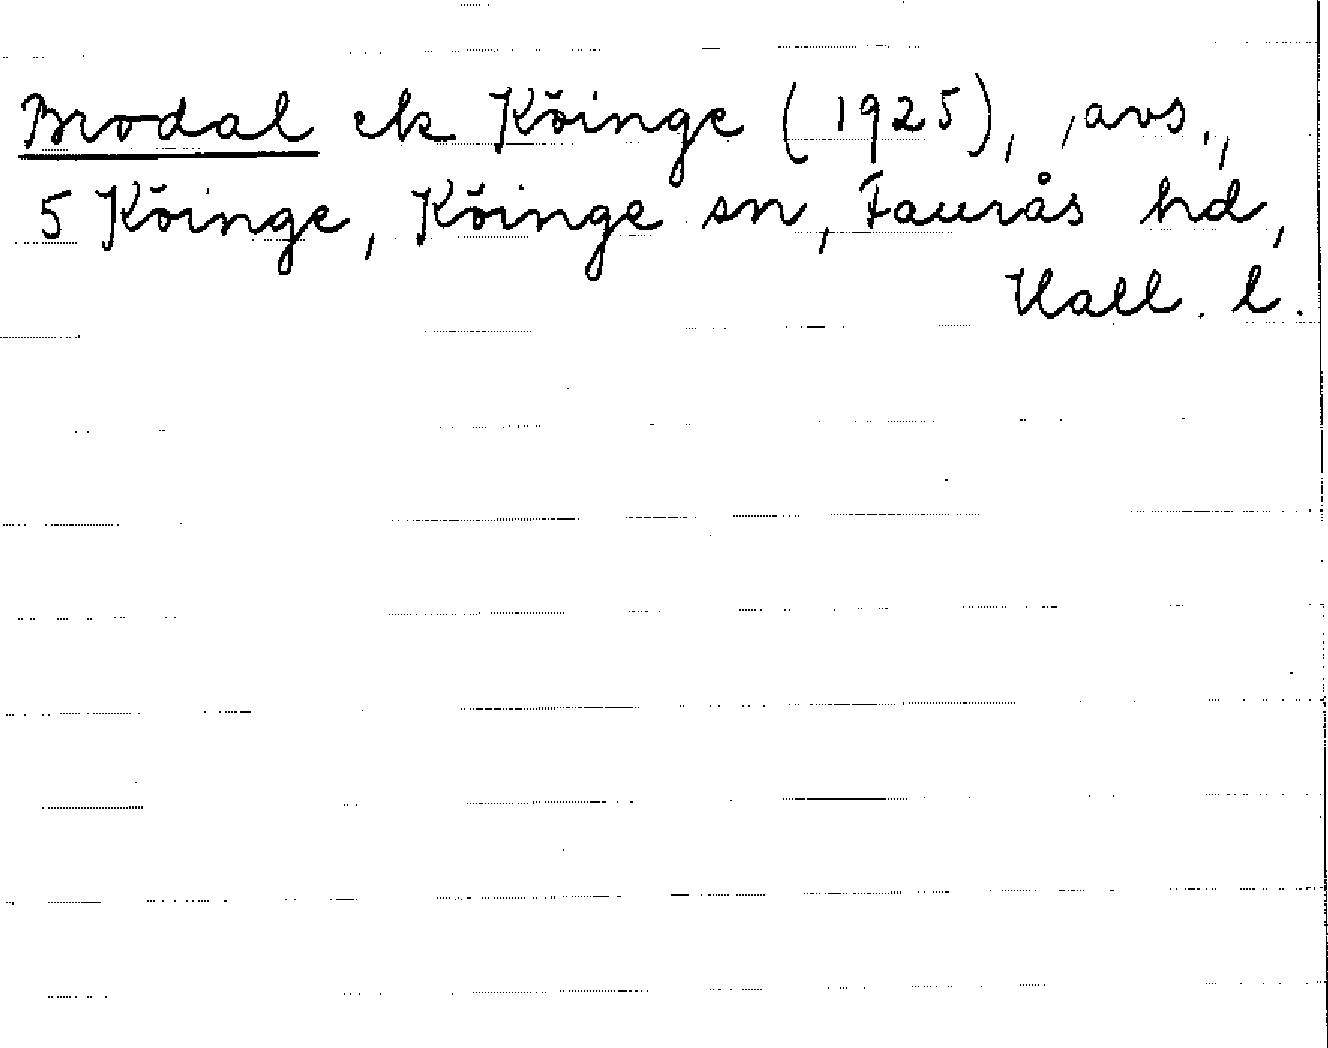 Brodal ek Köinge (1925), avs.,
5 Köinge, Köinge sn, Faurås hd,
Hall. l.